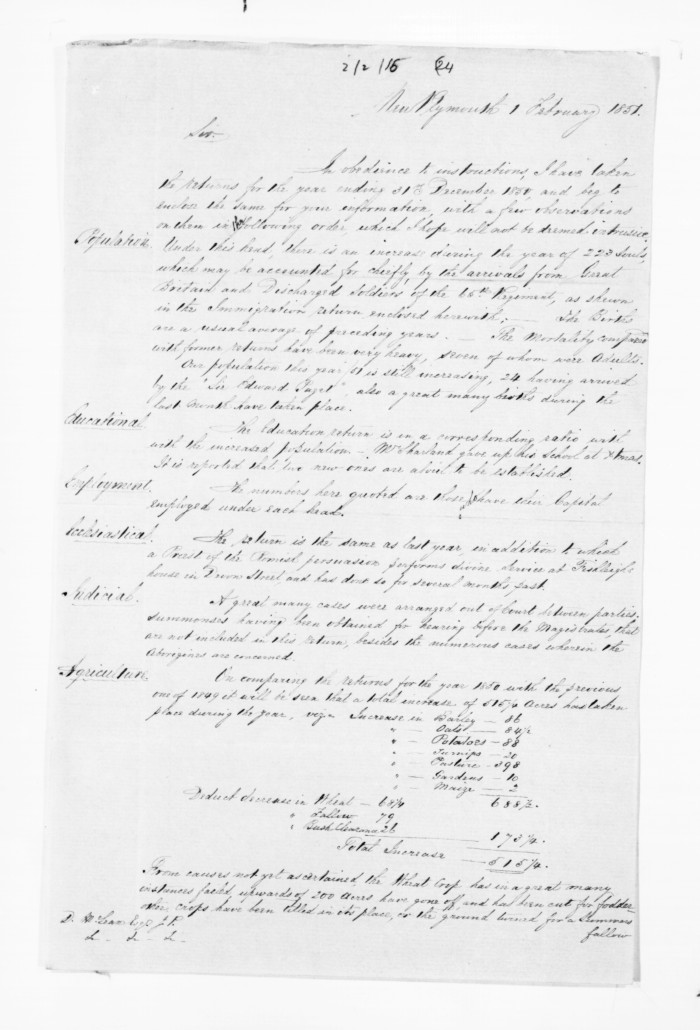 2/2/15 64
New Plymouth 1 February 1851.
Sir.
In obedience to instructions, I have taken
the returns for the year ending 31st December 1850, and beg to
enclose the same for your information, with a few observations
on them in the following order, which I hope will not be deemed intrusive.
Population. Under this head, there is an increase during the year of 223 Souls,
which may be accounted for chiefly, by the arrivals from Great
Britain and Discharged Soldiers of the 65th Regiment, as shewn
in the Immigration return enclosed herewith. — The Births
are a usual average of preceding years. — The Mortality compared
with former returns have been very heavy, seven of whom were Adults.
Our population this year is still increasing, 24 having arrived
by the "Sir Edward Paget", also a great many births during the
last month have taken place.
Educational. The Education return is in a corresponding ratio with
with the increased population — Mr Sharland gave up his School at Xmas.
It is reported that two new ones are about to be established.
Employment. The numbers here quoted are those have their Capital
employed under each head.
Ecclesiastical. The return is the same as last year, in addition to which
a Priest of the Romish persuasion performs divine Service at
house in Devon Street and has done so for several months past.
Judicial. A great many cases were arranged out of Court between parties,
summonses having been obtained for hearing before the Magistrates, that
are not included in this return, besides the numerous cases wherein the
Aborigines are concerned.
Agriculture. On comparing the returns for the year 1850 with the previous
one of 1849 it will be seen that a total increase of 515¼ Acres has taken
place during the year, viz. Increase in Barley — 86
" — Oats — 84½
" — Potatoes — 88
" — Turnips — 20
" — Pasture — 398
" — Gardens — 10
" — Maize — 2
Deduct decrease in Wheat — 68¼ 688½.
" Fallow 79
" Bush Clearing 26 173¼.
Total Increase — 515¼.
From causes not yet ascertained, the Wheat Crop has in a great many
instances failed, upwards of 200 Acres have gone off, and has been cut for fodder
other crops have been tilled in its place, or the ground turned for a Summer
fallow
D. McLean Esqr J.P.
&. &. &.